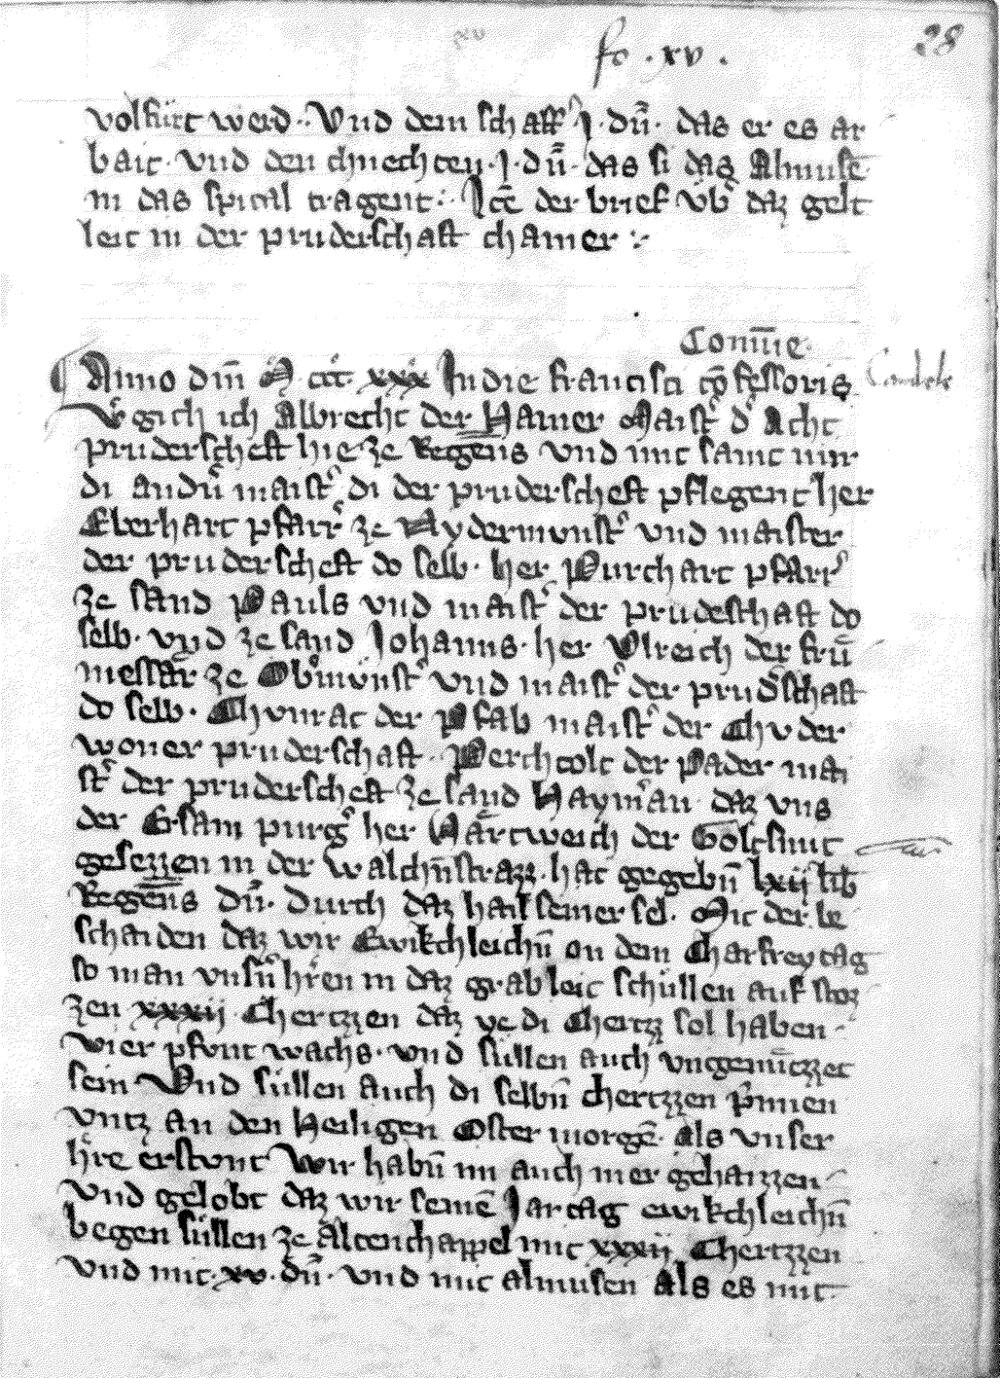 xv
fo . xv .
28
volfürt werd ·· Vnd dem schaff͛ j · dn̄ · das er es ar
bait · vnd den chnechten · j · dn̄ · das si das Almusē
in das spital tragent ·· Itē der brief vb͛ daz gelt
leit in der pruderschaft chamer ··
Comu̅e ·
Anno dn̄i M · ccc · xxx In die francisci cōfessoris
Candele
V͛gich ich Albrecht der Hamer Maist͛ d͛ Acht
pruderscheft hie ze Regēns vnd mit samt mir
di andn̄ maist͛ di der pruderscheft pflegent her
Eberhart pfarr͛ ze Nydermvnst͛ vnd maister
der pruderscheft do selb · her Purchart pfarr͛
ze sand Pauls vnd maist͛ der prudeschaft do
selb · vnd ze sand Johanns · her Vlreich der frů
messar ze Ob͛mv̈nst͛ vnd maist͛ der prud͛schaft
do selb · Chvnrat der Pfab maist͛ der Chvder
woner pruderschaft · Perchtolt der Pader mai
st͛ der pruderscheft ze sand Haym͛an daz vns
der Ersam purg͛ her Hærtweich der Goltsmit
gesezzen in der walchn̄strazz · hat gegebn̄ lxij lib
Regēns dn̄ · Durch daz hail seiner sel · Mit der be
schaiden daz wir Ewikchleichn̄ on dem Charfreytag
so man vnsn̄ hr̄en in daz grab leit schüllen auf stoz
zen xxxij Chertzzen daz ye di Chertz sol haben
vier pfvnt wachs · vnd süllen auch vngenützzet
sein · Vnd süllen auch di selbn̄ chertzzen p͛nnen
vntz an den Heiligen Oster morgē · als vnser
hr̄e erstvnt Wir habn̄ im auch mer gehaizzen
vnd gelobt daz wir seinē Jartag ewikchleichn̄
begen süllen ze Altenchappel mit xxxij Chertzzen
vnd mit · xv · dn̄ · vnd mit almusen als es mit